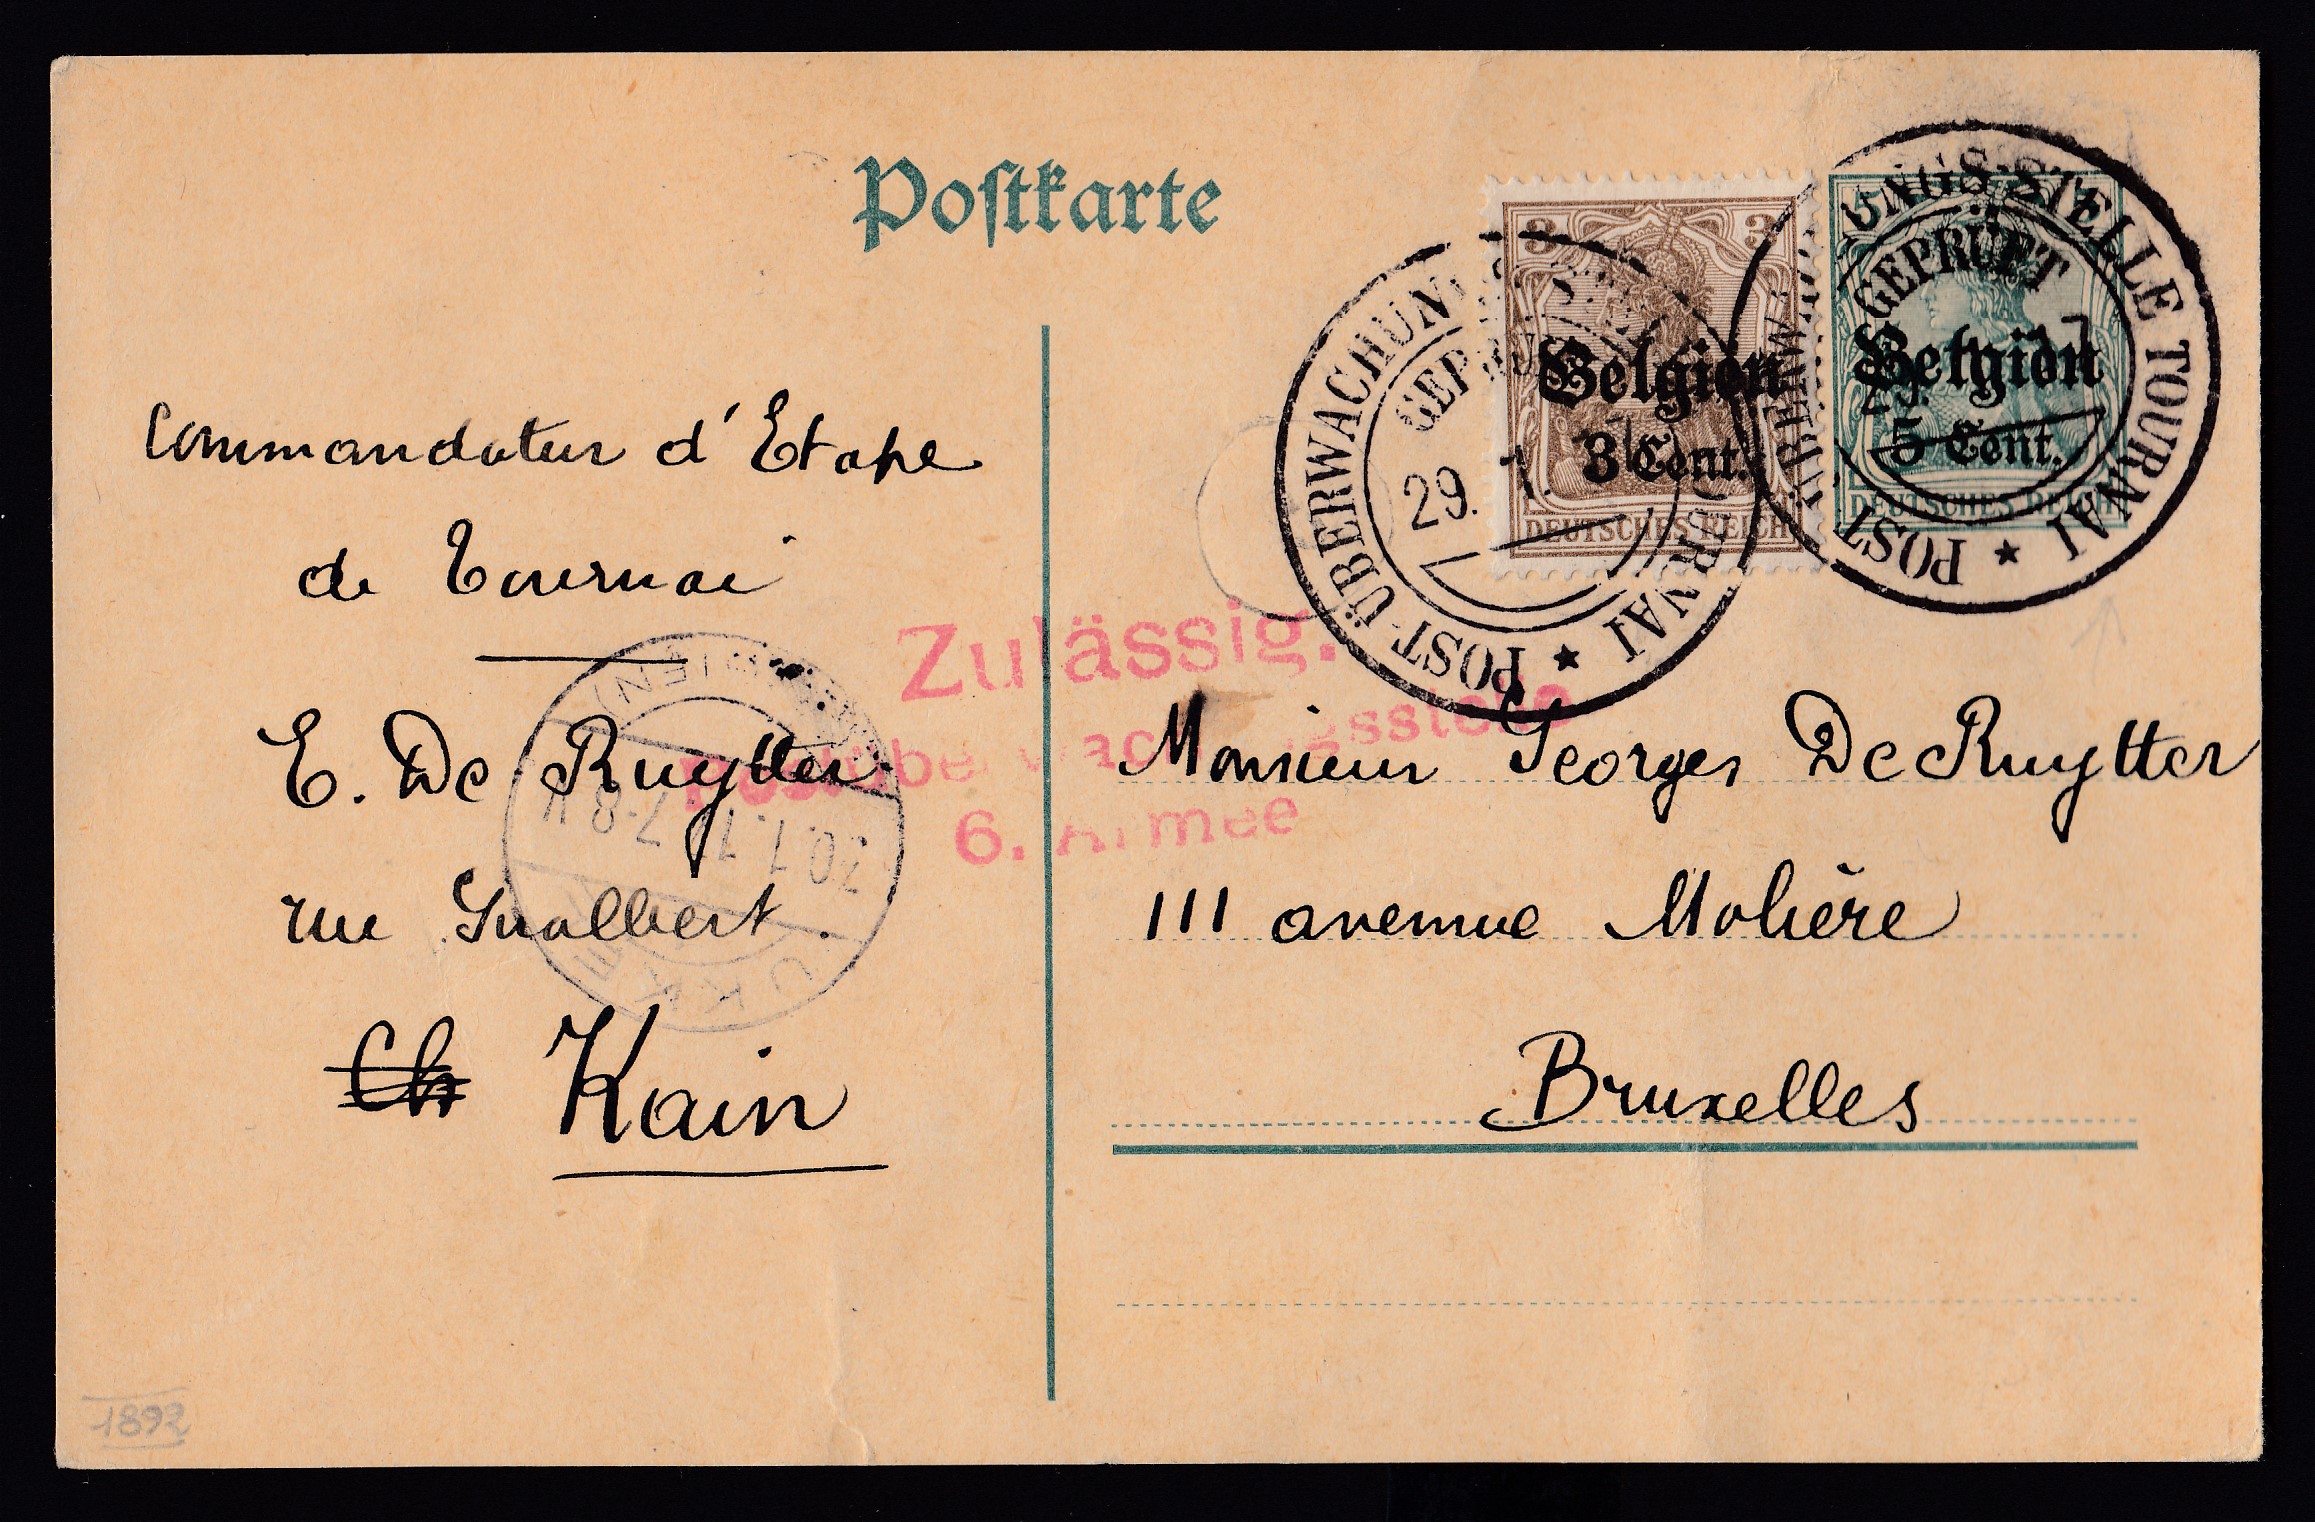 Postkarte
3 3
Belgien
3 Cent.
DEUTSCHES REICH
5
Belgien
5 Cent.
DEUTSCHES REICH
POST-ÜBERWACHUNGS-STELLE TOURNAI ★
GEPRÜFT
29.
POST-ÜBERWACHUNGS-STELLE TOURNAI ★
GEPRÜFT
29.
Commandatur d'Etape
de Tournai
E. De Ruytter
rue Gualbert.
Ch Kain
Zulässig.
Postüberwachungsstelle
6. Armee
UKKEL (BELGIEN)
7-8 N
Monsieur Georges De Ruytter
111 avenue Molière
Bruxelles
1892